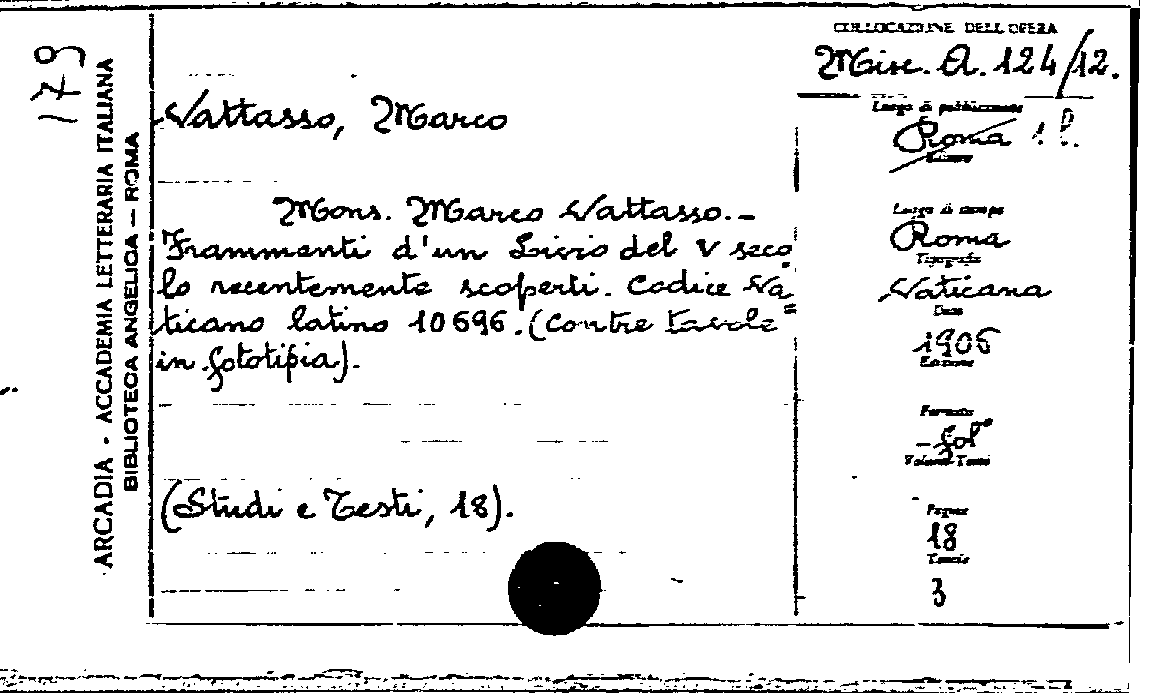 179
ARCADIA - ACCADEMIA LETTERARIA ITALIANA
BIBLIOTECA ANGELICA — ROMA
COLLOCAZIONE DELL'OPERA
Misc. A. 124/12.
Vattasso, Marco
Luogo di pubblicazione
Roma s. l.
Mons. Marco Vattasso.-
Frammenti d'un Livio del V seco
lo recentemente scoperti. Codice Va
ticano latino 10696. (Con tre tavole
in fototipia).
(Studi e Testi, 18).
Luogo di stampa
Roma
Tipografia
Vaticana
Data
1906
Edizione
Formato
fol°
Volumi-Tomi
Pagine
18
Tavole
3